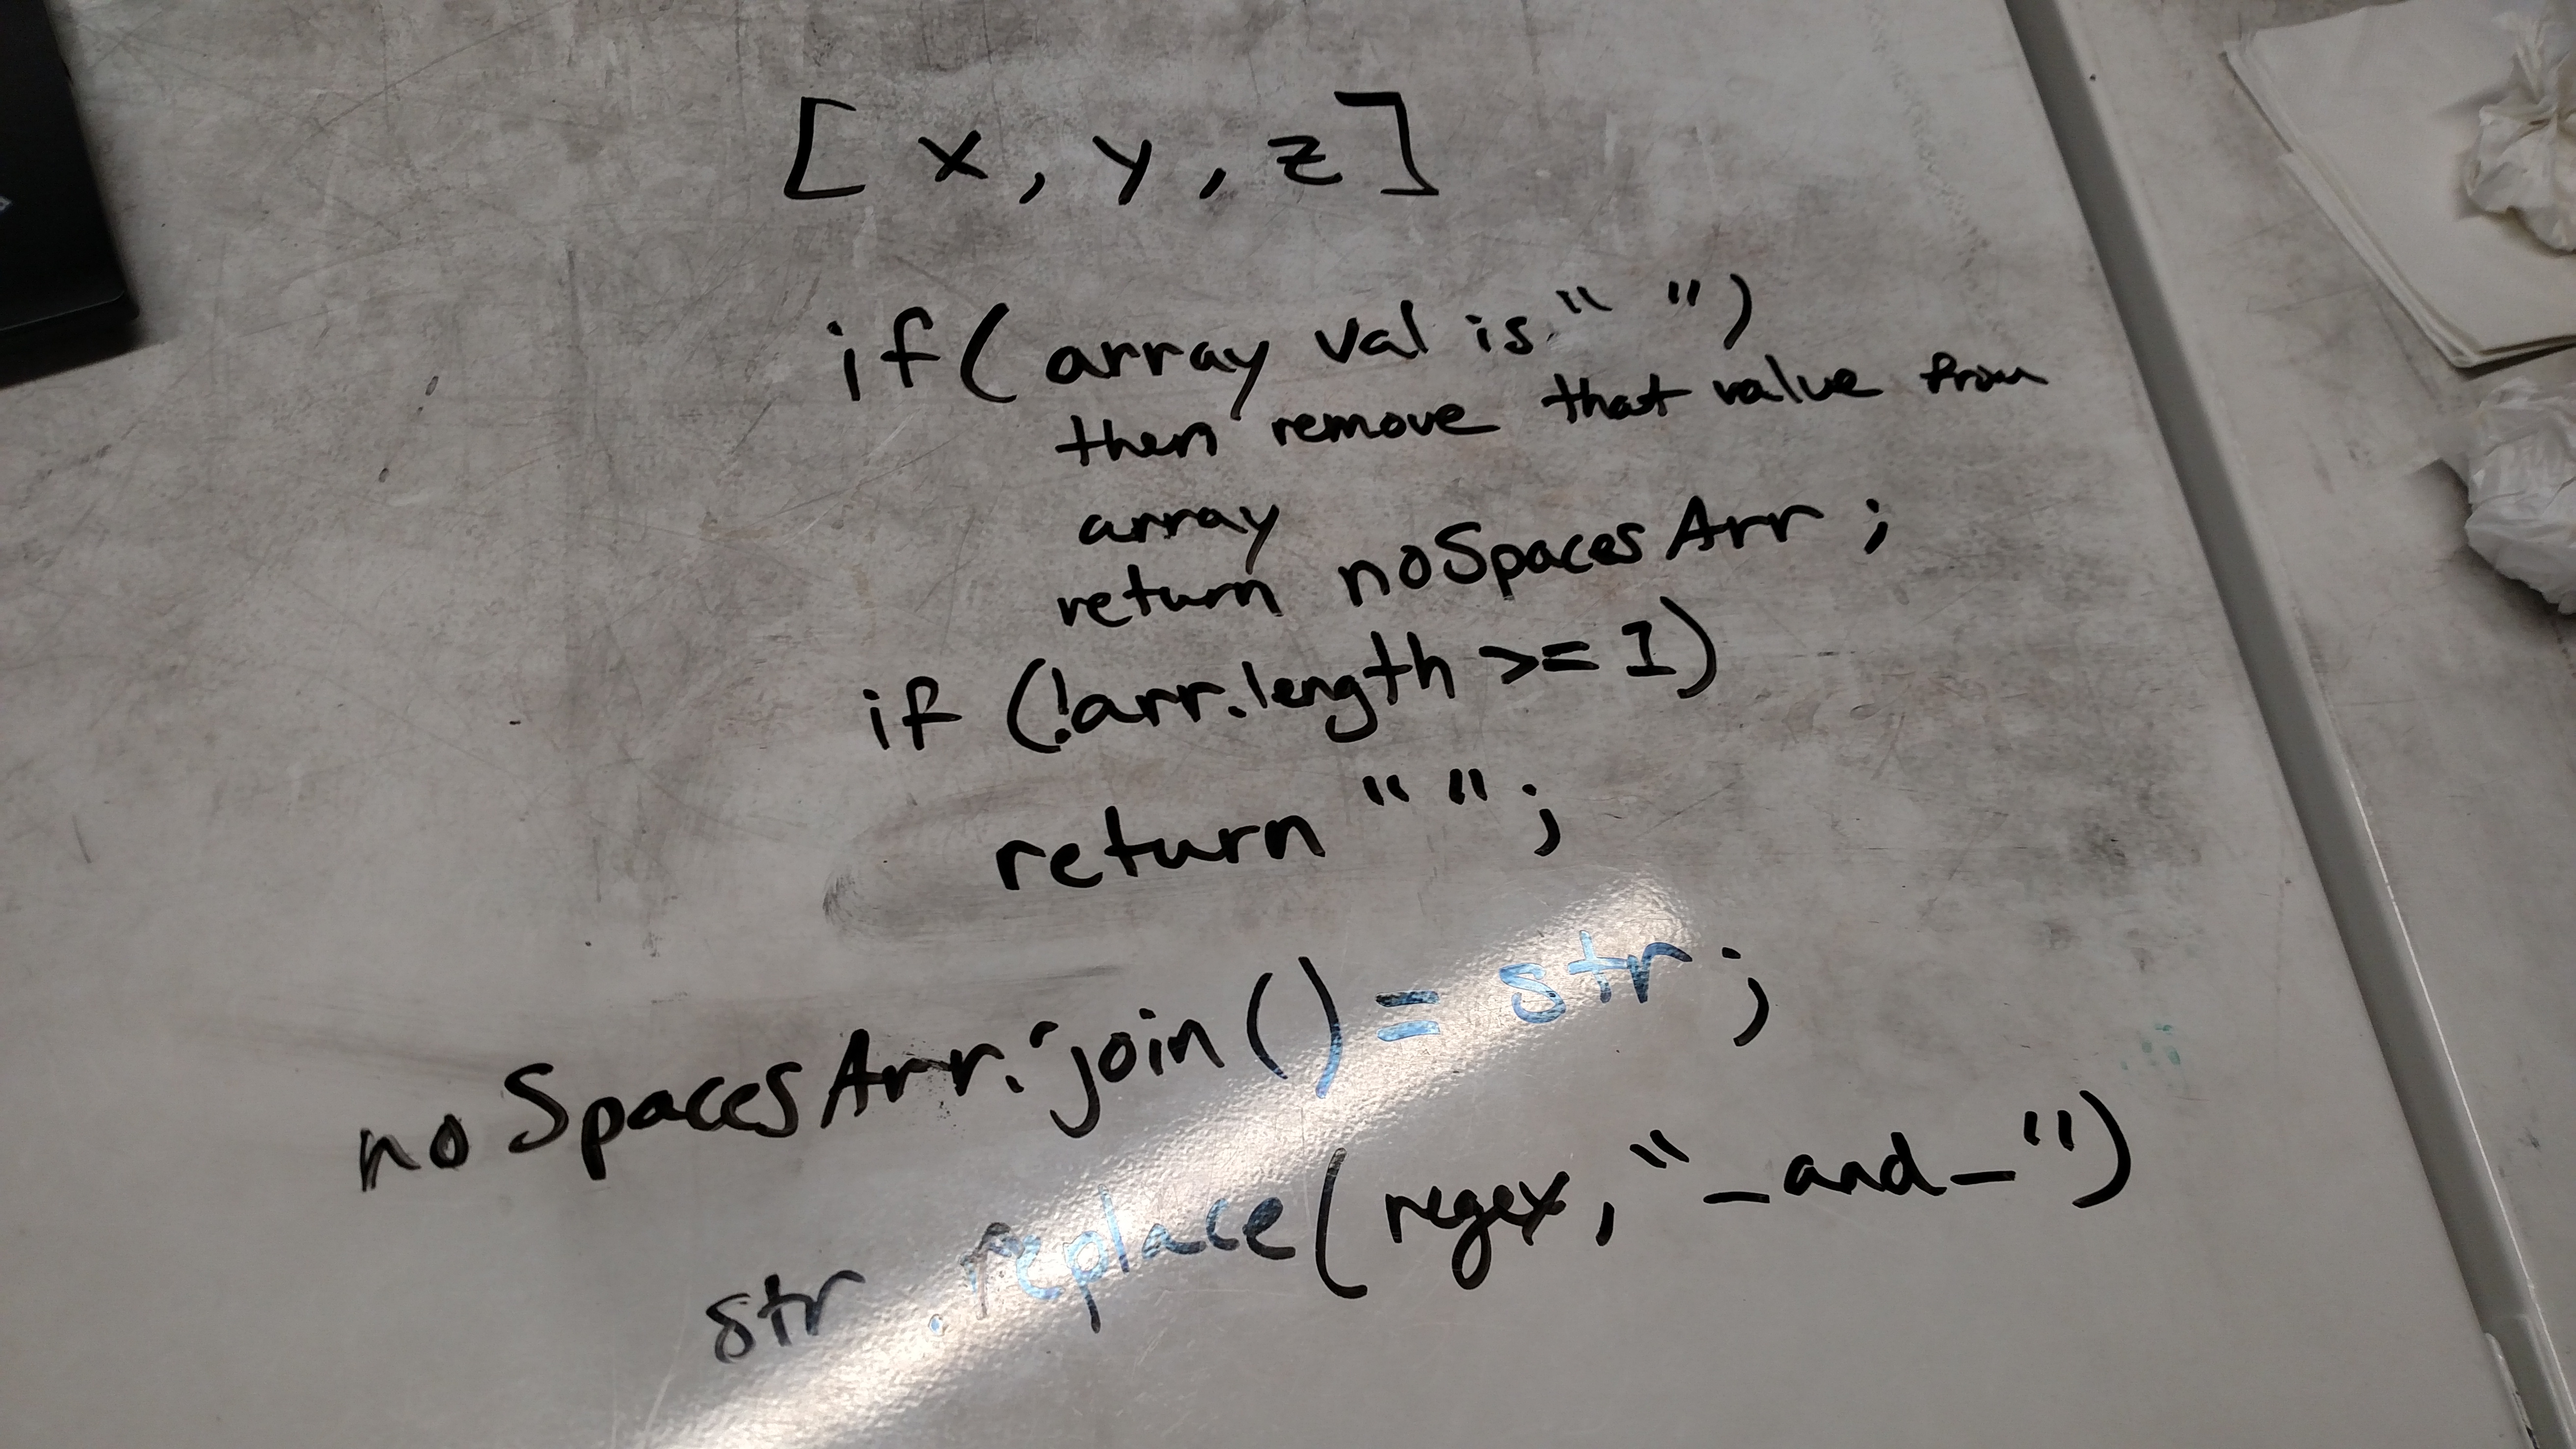 [ x, y, z ]
if( array val is " ")
then remove that value from
array
return noSpacesArr ;
if (!arr.length >= 1)
return " " ;
noSpacesArr.join() = str ;
str.replace(regex, "_and_")